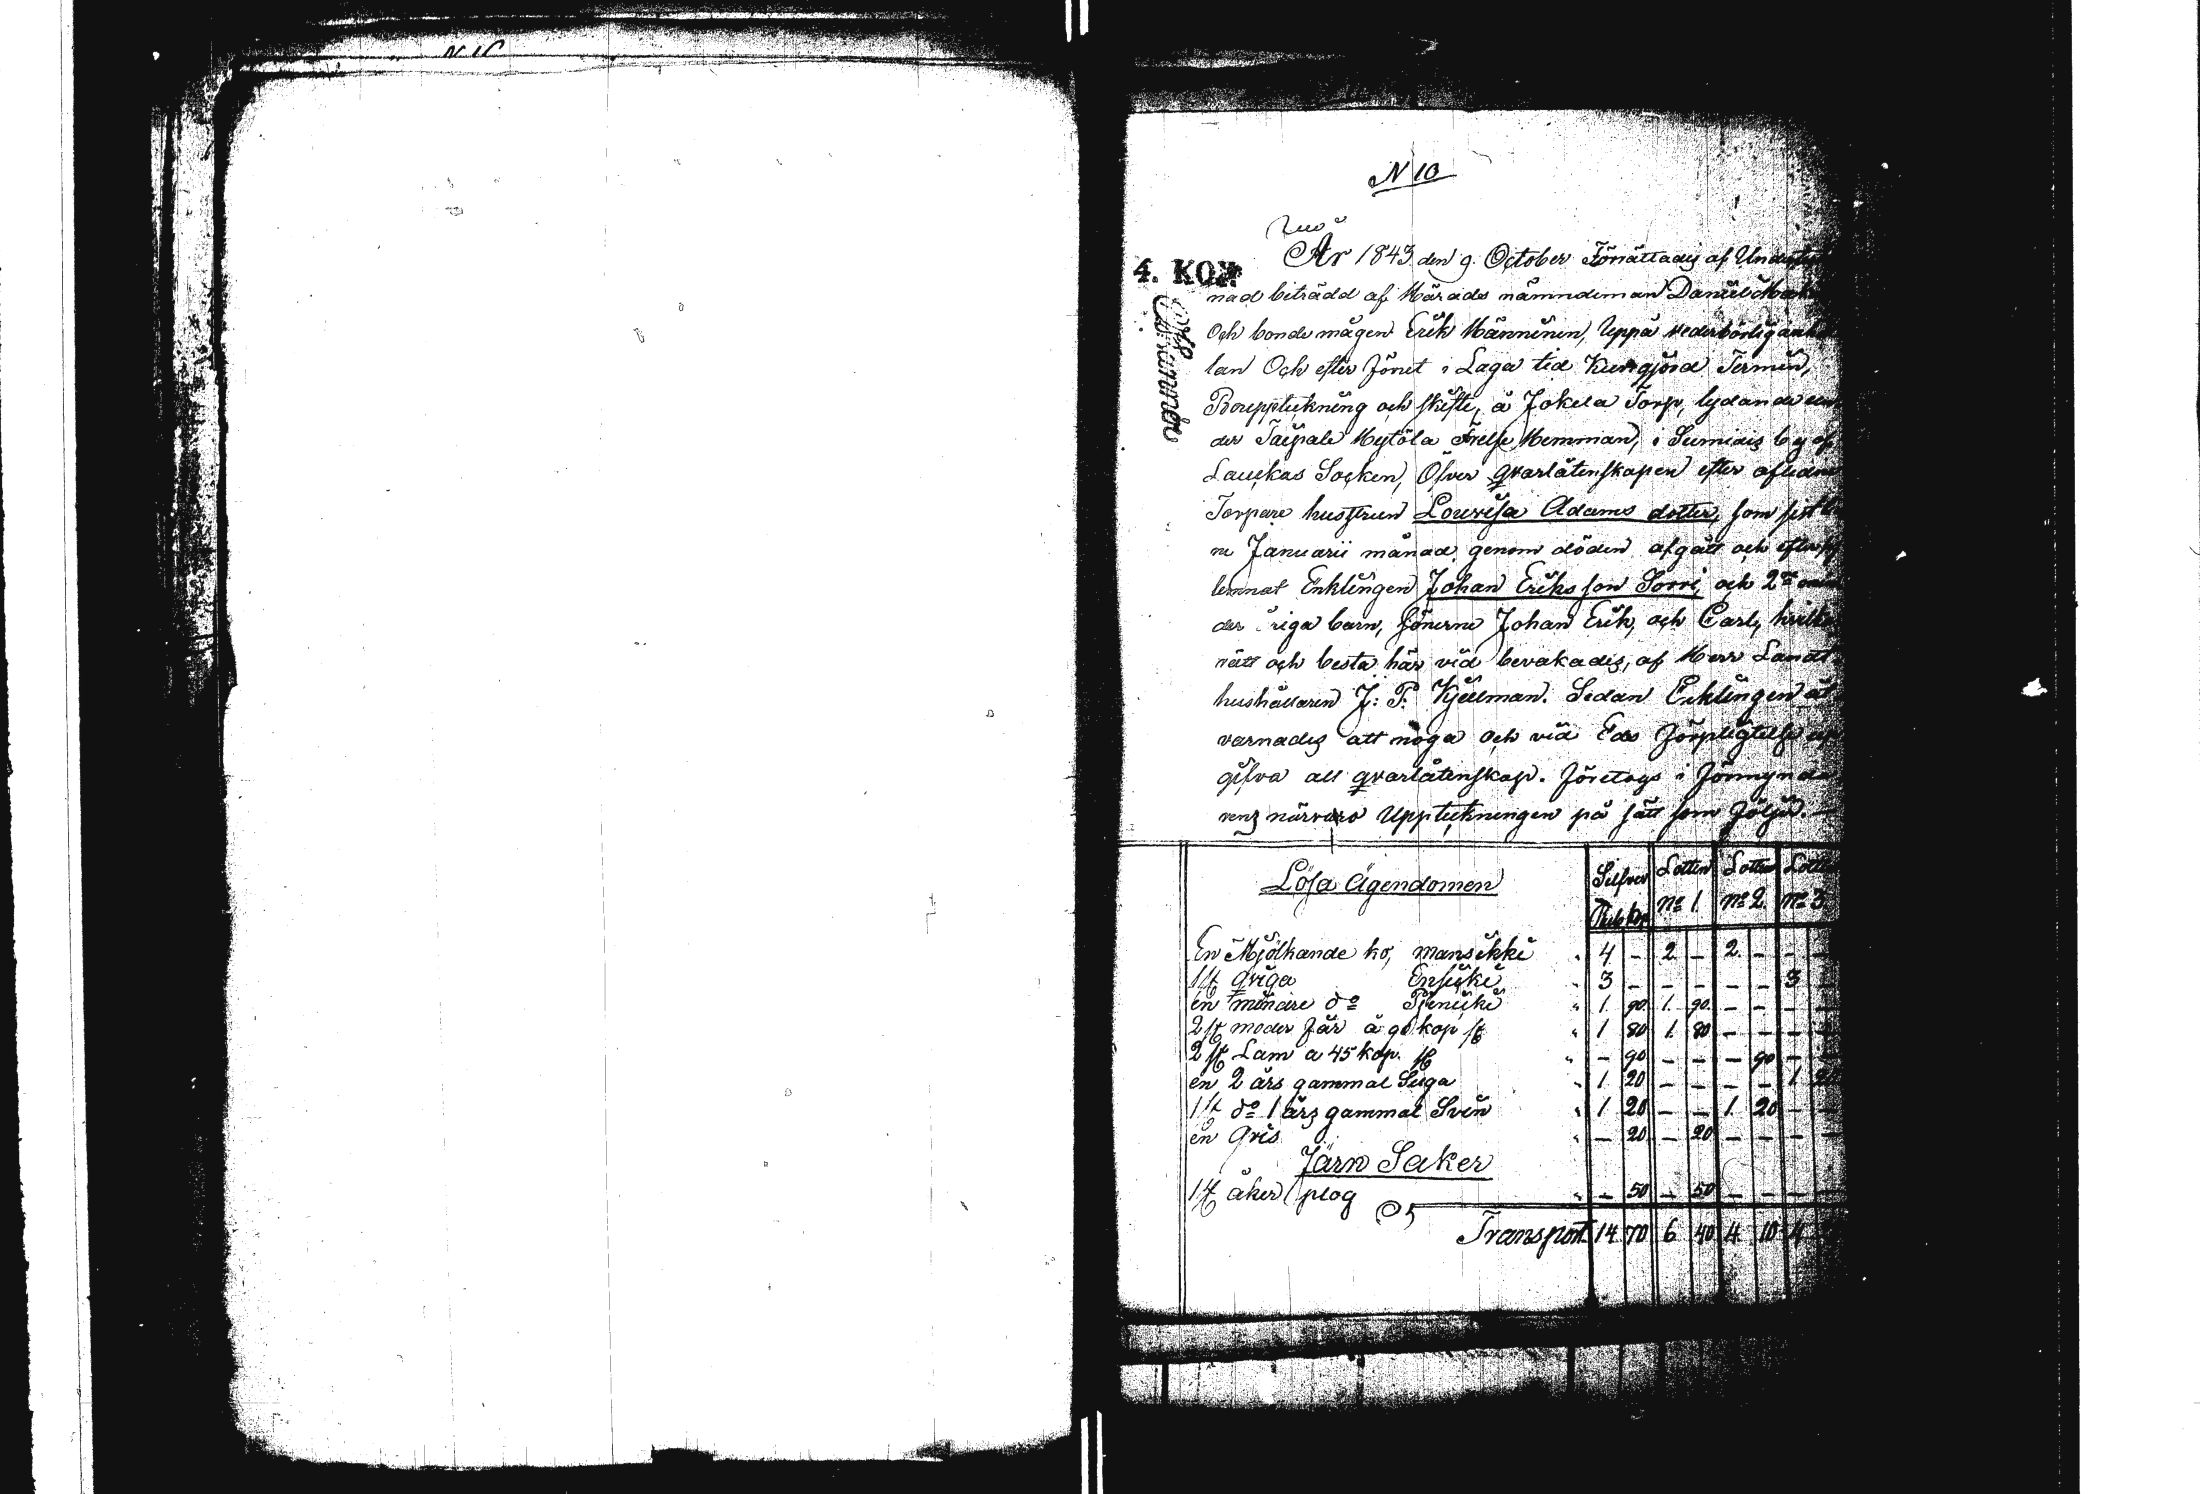 N 10
N 10
År 1843 den 9. October Förrättades af Undertek
nad biträdd af Härads nämndeman Daniel
och bonde mågen Erik Hänninen, Uppå vederbörlig anhå
lan Och efter förut i Laga tid Kungjord Termin,
Bouppteckning och skifte, å Jokela Torp, lydande un
der Taipale Mytölä Frelse Hemman, i Sumiais by af
Laukas Socken, Öfver qvarlåtenskapen efter aflidne
Torpare hustrun Lovisa Adams dotter, som sist
ne Januarii månad genom döden afgått och efter
lemnat Enklingen Johan Eriks son Sorri, och 2ne omyn
der åriga barn, sönerne Johan Erik, och Carl, hvilkas
rätt och besta här vid bevakades, af Herr Landt
hushållaren J: P. Kjellman. Sedan Enklingen åt
varnades att noga och vid Eds förpligtelse upp
gifva all qvarlåtenskap. företogs i förmynda
rens närvaro Uppteckningen på sätt som följer.
4. KOP
Lösa Ägendomen Silfver Lotten Lotten Lotten
Rub. Kop. No 1. No 2. No 3.
En Mjölkande ko, mansikki " 4 – 2 – 2 – – –
1 st qviga Ensicki " 3 – – – – – 3
en mindre do Tjenicki " 1 90 1 90 – – – –
2 st moder får à 90 kop st " 1 80 1 80 – – – –
2 st Lam a 45 kop. st " – 90 – – – 90 – –
en 2 års gammal Suga " 1 20 – – – – 1 20
1 st do 1 års gammal Svin " 1 20 – – 1 20 – –
en Gris " – 20 – 20 – – – –
Järn Saker
1 st åker plog " – 50 – 50 – – – –
Transport 14 70 6 40 4 10 4